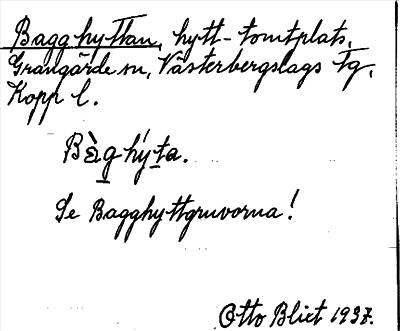 Bagghyttan, hytt-tomtplats,
Grangärde sn, Västerbergslags tg,
Kopp l.
Bàg hýta.
Se Bagghyttgruvorna!
Otto Blixt 1937.